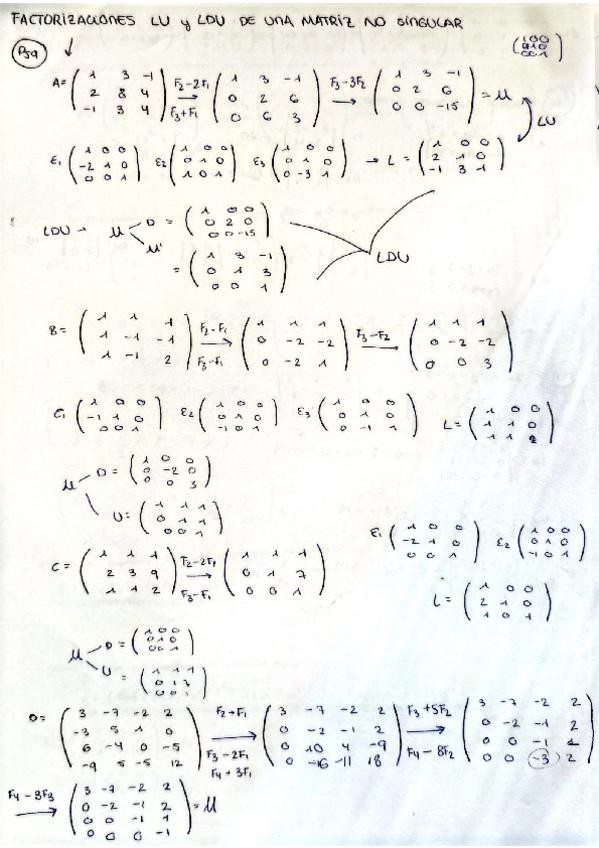 FACTORIZACIONES LU y LDU DE UNA MATRIZ NO SINGULAR
P59
(1 0 0; 0 1 0; 0 0 1)
A = (1 3 -1; 2 8 4; -1 3 4) F2-2F1 F3+F1 → (1 3 -1; 0 2 6; 0 6 3) F3-3F2 → (1 3 -1; 0 2 6; 0 0 -15) = U
LU
E1 (1 0 0; -2 1 0; 0 0 1) E2 (1 0 0; 0 1 0; 1 0 1) E3 (1 0 0; 0 1 0; 0 -3 1) → L = (1 0 0; 2 1 0; -1 3 1)
LDU → U D = (1 0 0; 0 2 0; 0 0 -15)
U' = (1 3 -1; 0 1 3; 0 0 1)
LDU
B = (1 1 1; 1 -1 -1; 1 -1 2) F2-F1 F3-F1 → (1 1 1; 0 -2 -2; 0 -2 1) F3-F2 → (1 1 1; 0 -2 -2; 0 0 3)
E1 (1 0 0; -1 1 0; 0 0 1) E2 (1 0 0; 0 1 0; -1 0 1) E3 (1 0 0; 0 1 0; 0 -1 1) L = (1 0 0; 1 1 0; 1 1 2)
U D = (1 0 0; 0 -2 0; 0 0 3)
U = (1 1 1; 0 1 1; 0 0 1)
C = (1 1 1; 2 3 9; 1 1 2) F2-2F1 F3-F1 → (1 1 1; 0 1 7; 0 0 1)
E1 (1 0 0; -2 1 0; 0 0 1) E2 (1 0 0; 0 1 0; -1 0 1)
L = (1 0 0; 2 1 0; 1 0 1)
U D = (1 0 0; 0 1 0; 0 0 1)
U = (1 1 1; 0 1 7; 0 0 1)
D = (3 -7 -2 2; -3 5 1 0; 6 -4 0 -5; -9 5 -5 12) F2+F1 F3-2F1 F4+3F1 → (3 -7 -2 2; 0 -2 -1 2; 0 10 4 -9; 0 -16 -11 18) F3+5F2 F4-8F2 → (3 -7 -2 2; 0 -2 -1 2; 0 0 -1 1; 0 0 -3 2)
F4-3F3 → (3 -7 -2 2; 0 -2 -1 2; 0 0 -1 1; 0 0 0 -1) = U